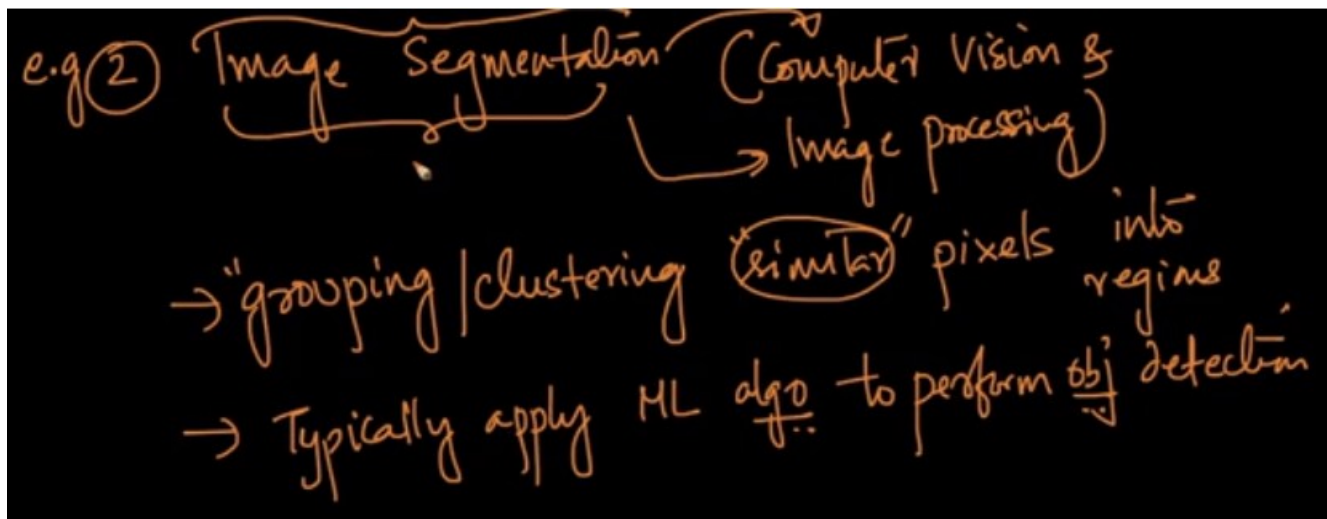 e.g ② Image Segmentation (Computer Vision &
Image processing)
→ "grouping/clustering "similar" pixels into
regions
→ Typically apply ML algo to perform obj detection